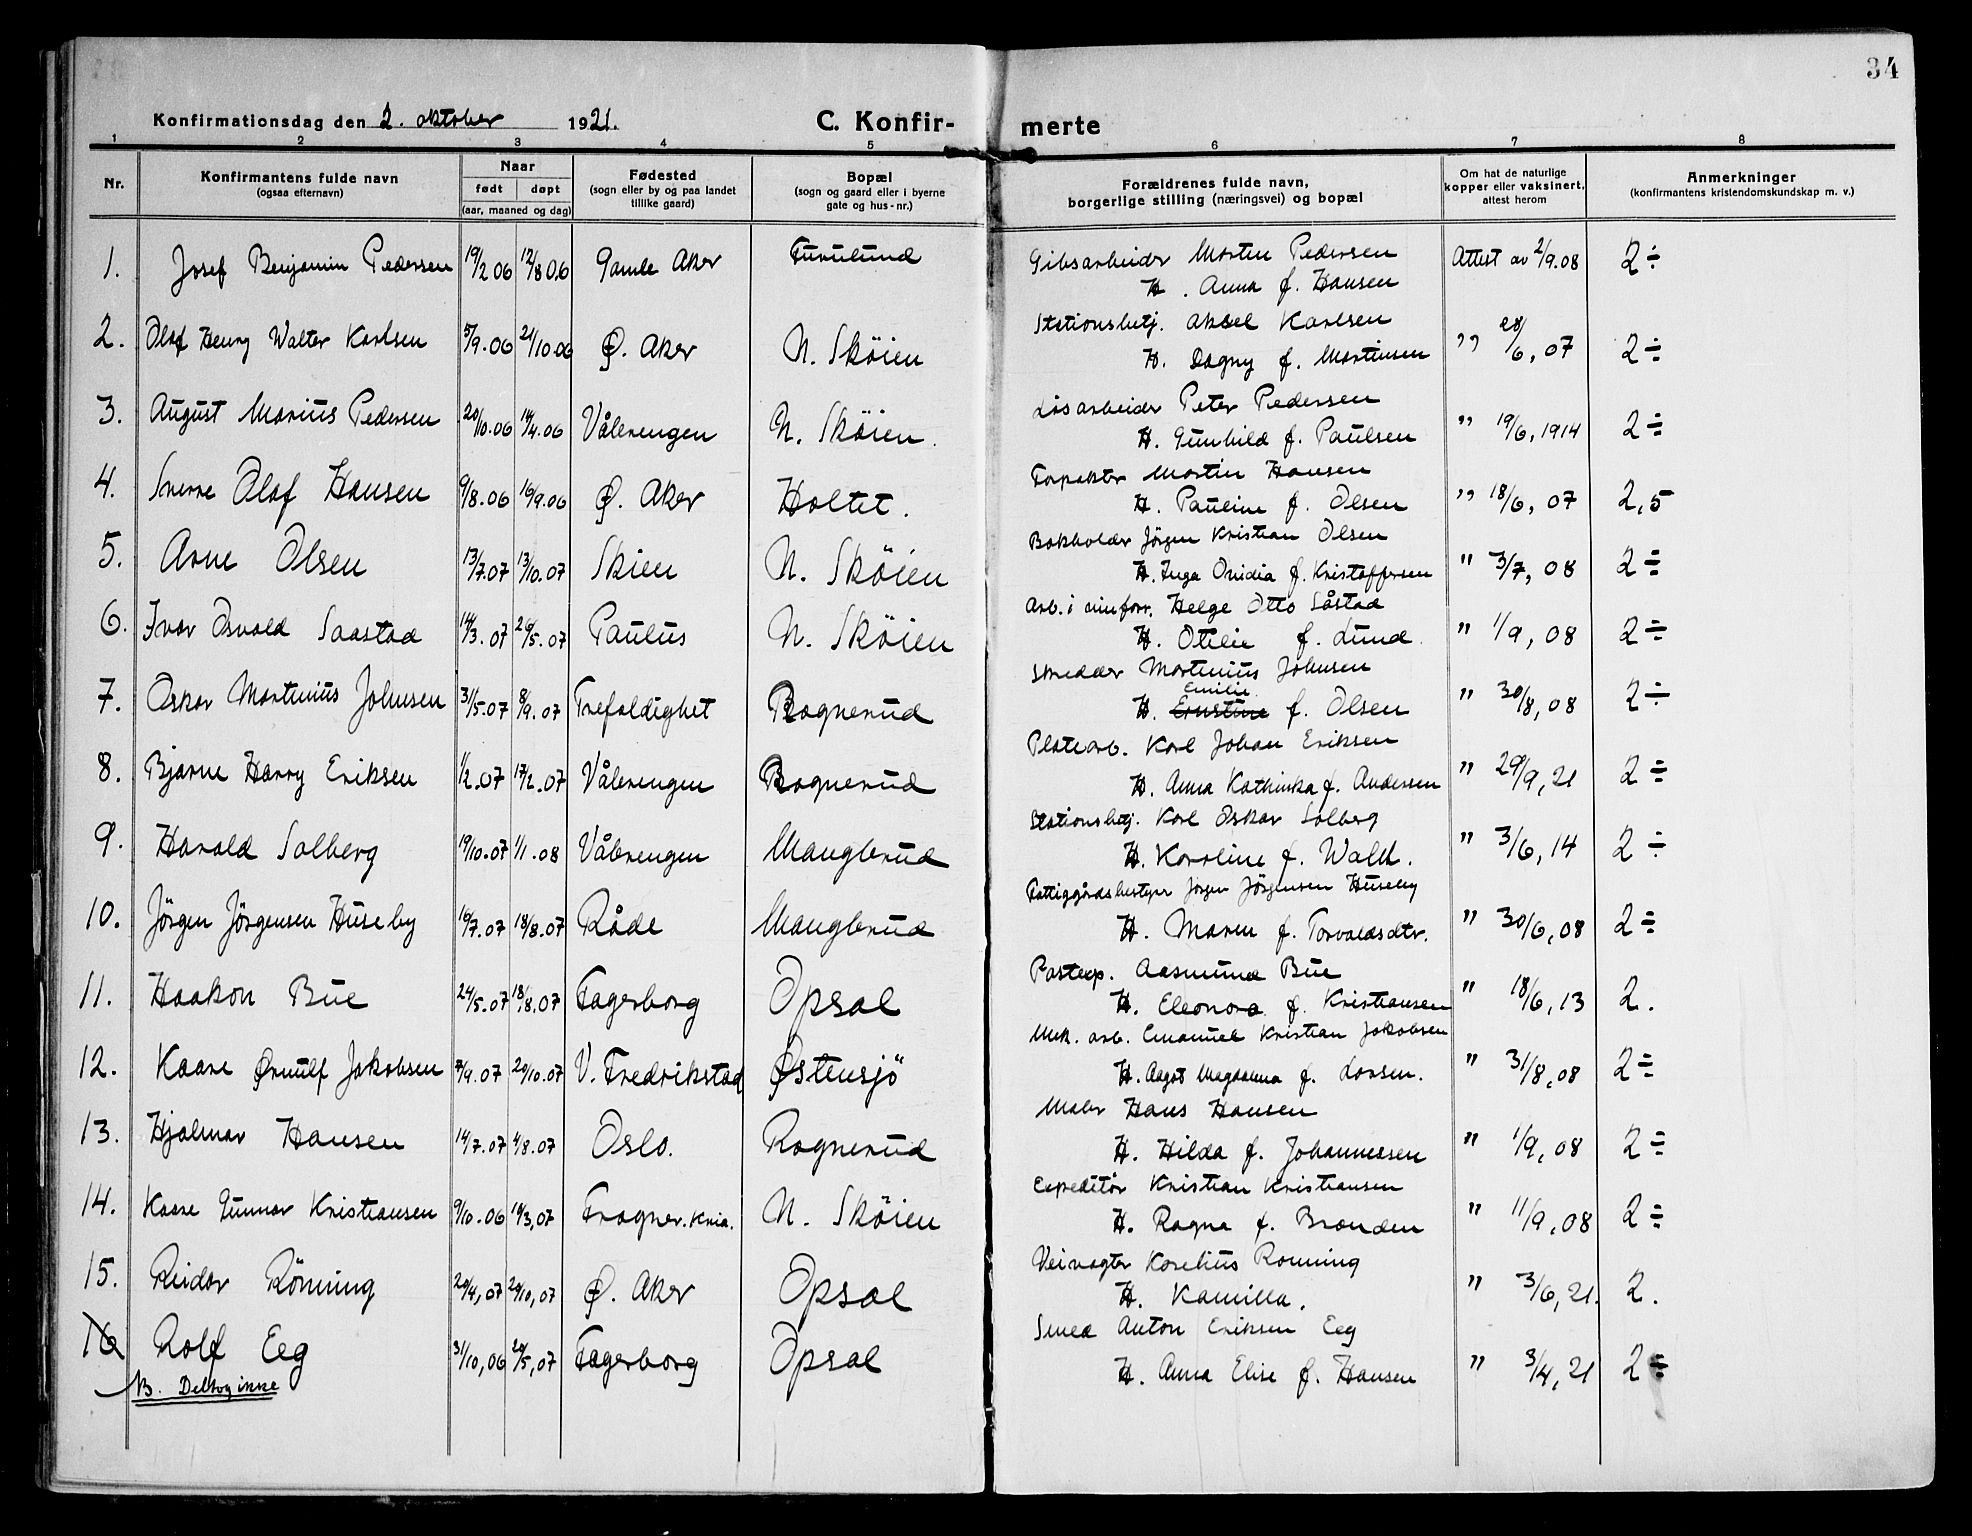 34
Konfirmationsdag den 2. oktober 1921.
C. Konfir-merte
1 2 3 4 5 6 7 8
Nr.
Konfirmantens fulde navn
(ogsaa efternavn)
Naar
født døpt
(aar, maaned og dag)
Fødested
(sogn eller by og paa landet
tillike gaard)
Bopæl
(sogn og gaard eller i byerne
gate og hus-nr.)
Forældrenes fulde navn,
borgerlige stilling (næringsvei) og bopæl
Om hat de naturlige
kopper eller vaksinert,
attest herom
Anmerkninger
(konfirmantens kristendomskundskap m. v.)
1. Josef Benjamin Pedersen 19/2 06 12/8 06 Gamle Aker Furulund Gibsarbeider Morten Pedersen Attest av 2/9.08 2÷
H. Anna f. Hansen
2. Olaf Henry Walter Karlsen 5/9.06 21/10.06 Ø. Aker N. Skøien Stationsbetj. Aksel Karlsen " 28/6, 07 2÷
H. Dagny f. Martinsen
3. August Marius Pedersen 20/10.06 14/4.06 Vålerengen N. Skøien. Løsarbeider Peter Pedersen " 19/6, 1914 2÷
H. Gunhild f. Paulsen
4. Sverre Olaf Hansen 9/8.06 16/9.06 Ø. Aker Holtet. Forpakter Martin Hansen " 18/6, 07 2,5
H. Pauline f. Olsen
5. Arne Olsen 13/7.07 13/10.07 Skien N. Skøien Bokholder Jörgen Kristian Olsen " 3/7, 08 2÷
H. Inga Ovidia f. Kristoffersen
6. Ivar Osvald Saastad 14/3.07 26/5.07 Paulus N. Skøien Arb. i minforr. Helge Otto Såstad " 1/9, 08 2÷
H. Otilie f. Lund
7. Oskar Martinius Johnsen 31/5.07 8/9.07 Trefoldighet Rognerud Skredder Martinius Johnsen " 30/8, 08 2÷
Emilie
H. Ernstine f. Olsen
8. Bjarne Harry Eriksen 1/2.07 17/2.07 Vålerengen Rognerud Platearb. Karl Johan Eriksen " 29/9, 21 2÷
H. Anna Kathinka f. Andersen
9. Harald Solberg 19/10.07 1/1.08 Vålerengen Manglerud Stationsbetj. Karl Oskar Solberg " 3/6, 14 2÷
H. Karoline f. Wold.
10. Jörgen Jörgensen Huseby 16/7.07 18/8.07 Råde Manglerud Fattiggårdsbestyrer Jörgen Jörgensen Huseby " 30/6, 08 2÷
H. Maren f. Torvaldsdtr.
11. Haakon Bue 24/5.07 18/8.07 Fagerborg Opsal Posteksp. Aasmund Bue " 18/6, 13 2.
H. Eleonora f. Kristiansen
12. Kaare Ørnulf Jakobsen 7/9.07 20/10.07 V. Fredrikstad Østensjö Mek. arb. Emanuel Kristian Jakobsen " 31/8, 08 2÷
H. Aagot Magdalena f. Larsen.
13. Hjalmar Hansen 14/7.07 4/8.07 Oslo. Rognerud Maler Hans Hansen " 1/9, 08 2÷
H. Hilda f. Johannessen
14. Kaare Gunnar Kristiansen 9/10.06 10/3,07 Frogner. Kria. N. Skøien Expeditør Kristian Kristiansen " 11/9, 08 2÷
H. Ragna f. Branden
15. Reidar Rönning 20/4,07 20/10,07 Ø. Aker Opsal Veivogter Korelius Ronning " 3/6, 21. 2.
H. Kamilla.
16 Rolf Eeg 31/10,06 20/5,07 Fagerborg Opsal Smed Anton Eriksen Eeg " 3/4, 21 2÷
NB. Deltog ikke H. Anna Elise f. Hansen